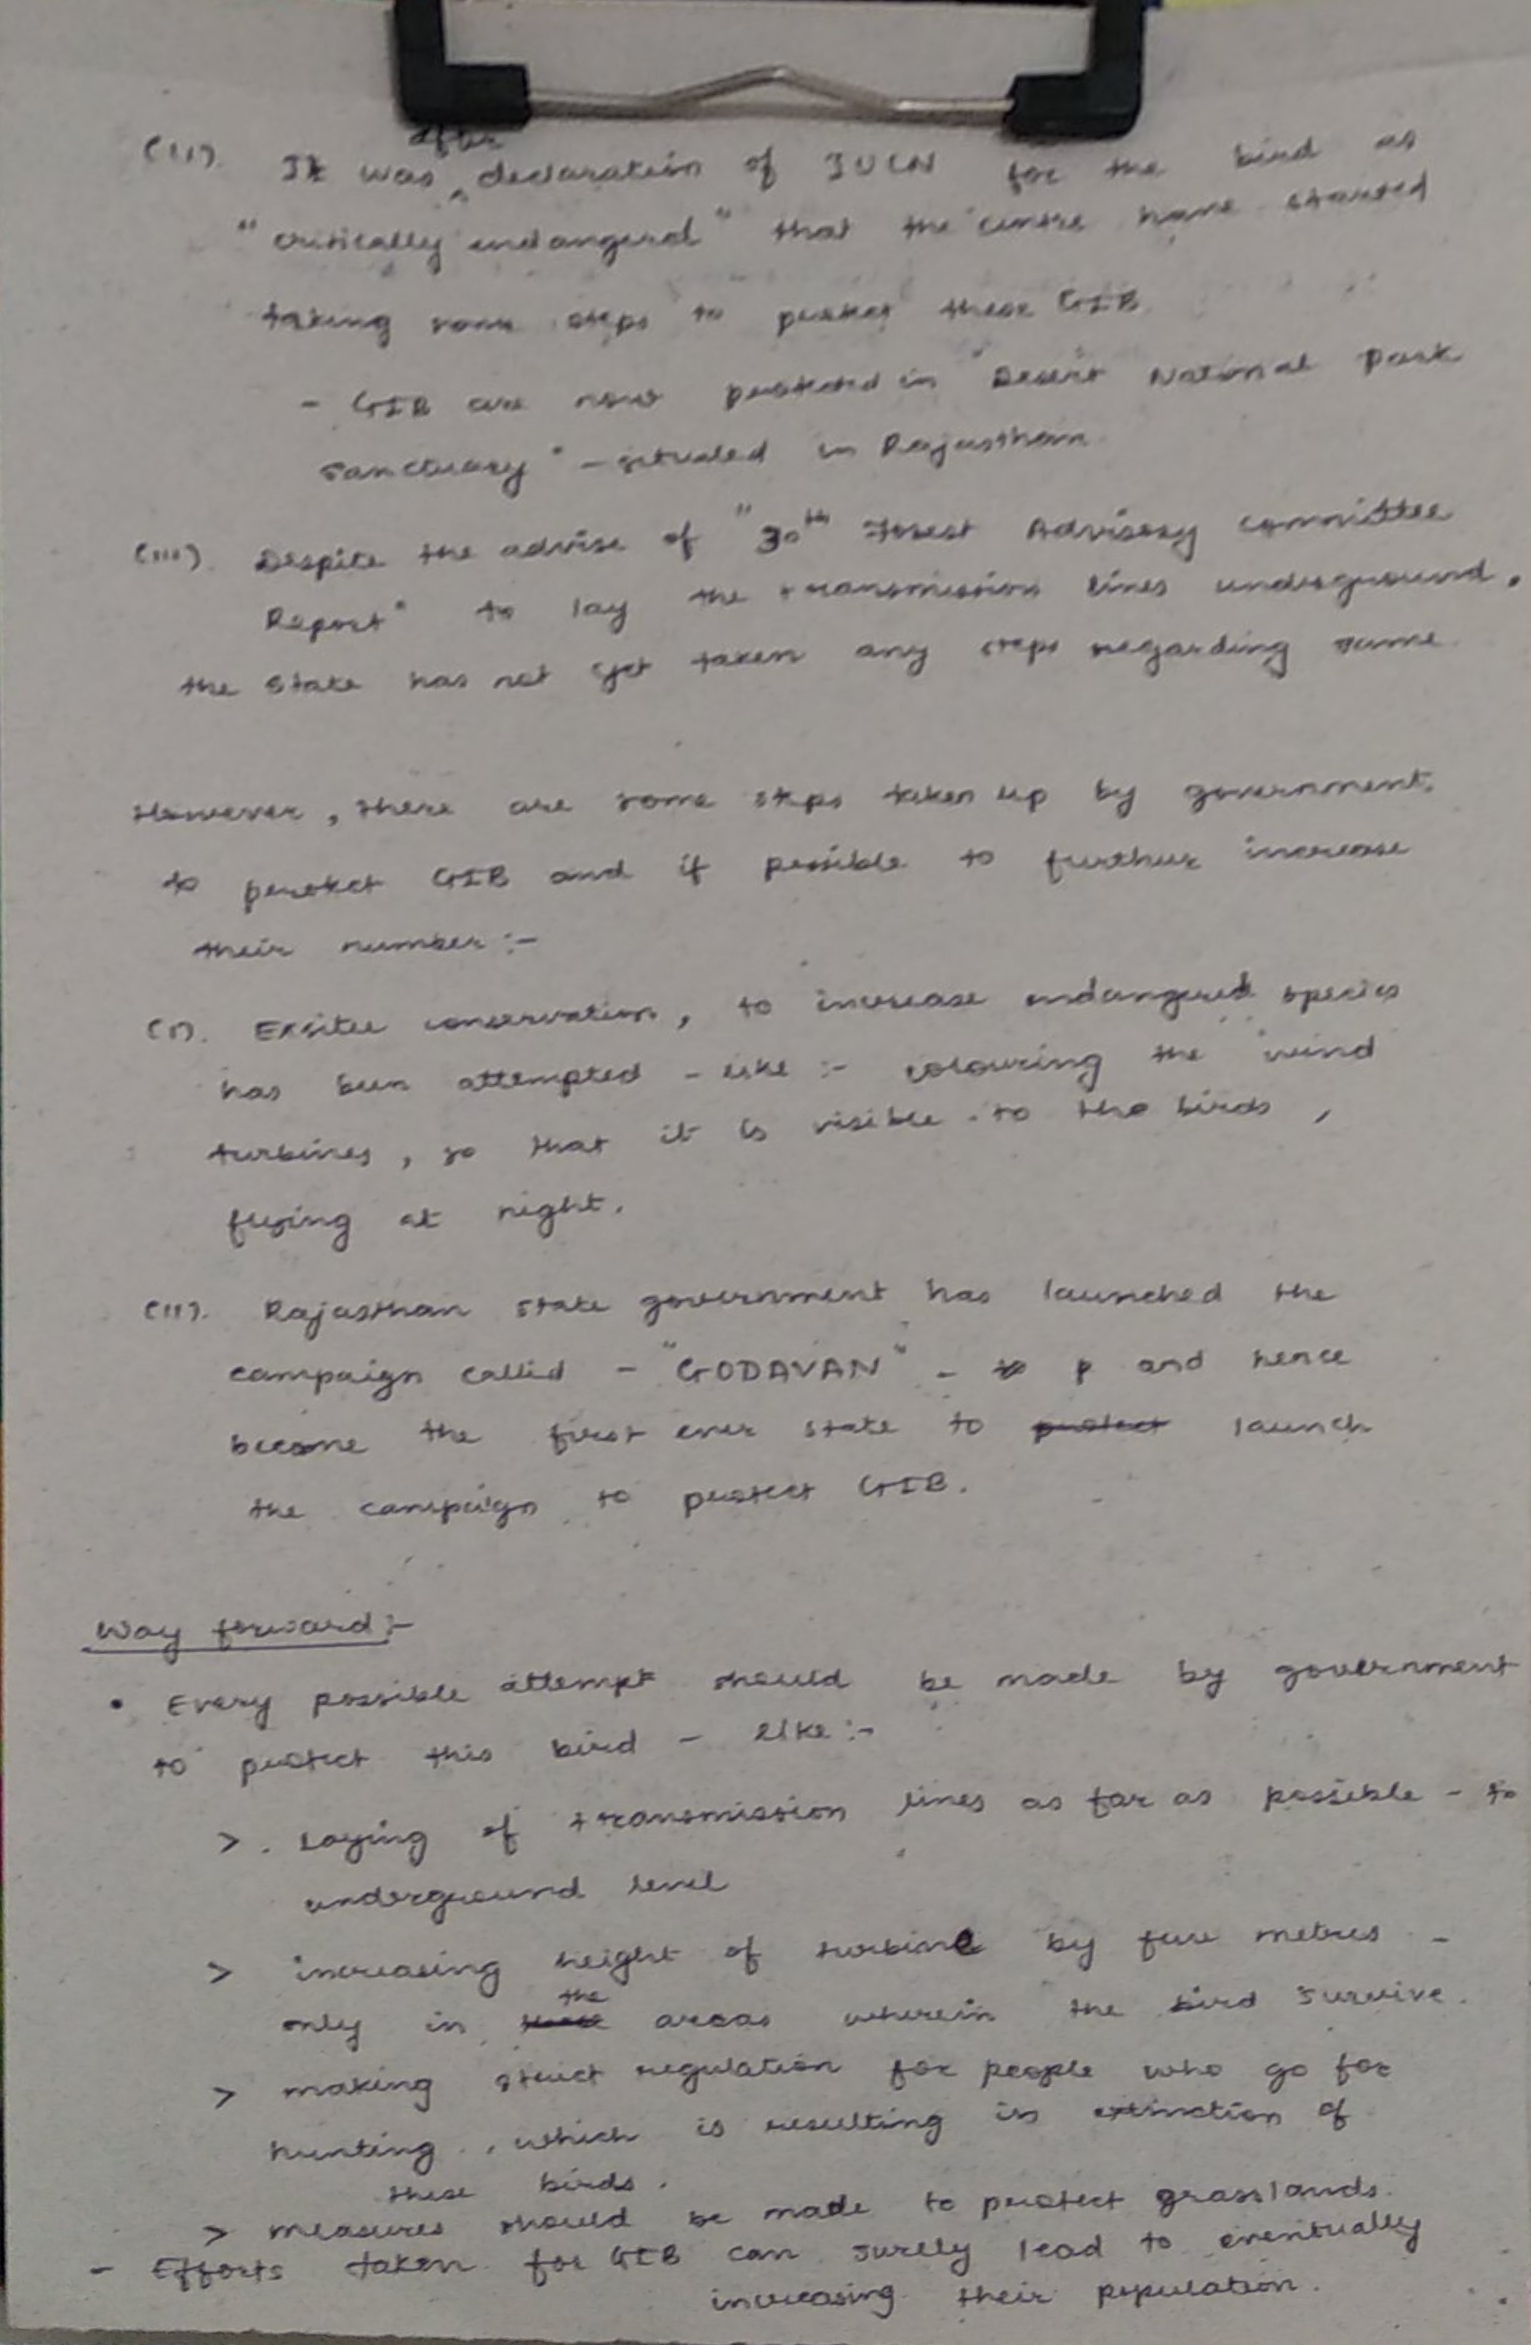 after
(ii). It was declaration of IUCN for the bird as
"critically endangered" that the centre have started
taking some steps to protect these GIB
- GIB are now protected in "Desert National Park
Sanctuary" - situated in Rajasthan
(iii). Despite the advise of "30th Forest Advisory Committee
Report" to lay the transmission lines underground,
the state has not yet taken any steps regarding same
However, there are some steps taken up by government
to protect GIB and if possible to further increase
their number :-
(i). Exsitu conservation, to increase endangered species
has been attempted - like :- colouring the wind
turbines, so that it is visible to the birds,
flying at night.
(ii). Rajasthan state government has launched the
campaign called - "GODAVAN" - to p and hence
become the first ever state to protect launch
the campaign to protect GIB.
Way forward :-
• Every possible attempt should be made by government
to protect this bird - like :-
> . Laying of transmission lines as far as possible - to
underground level
> increasing height of turbine by few metres -
the
only in areas wherein the bird survive.
> making strict regulation for people who go for
hunting, which is resulting in extinction of
these birds.
> measures should be made to protect grasslands.
- Efforts taken for GIB can surely lead to eventually
increasing their population.